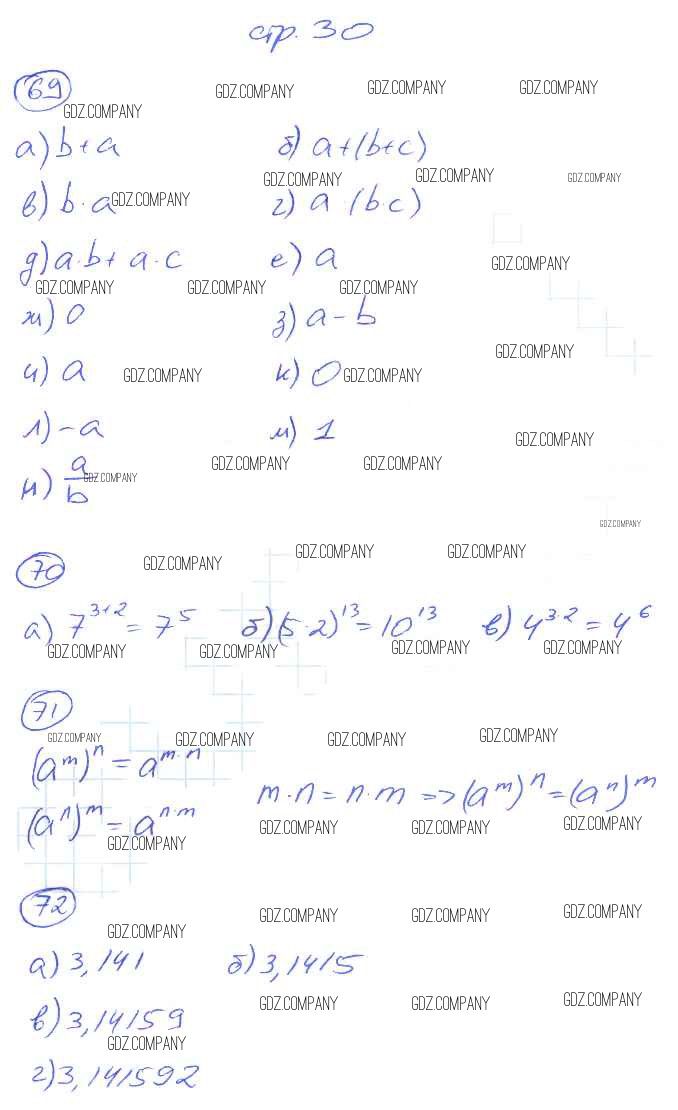 стр. 30
69
GDZ.COMPANY GDZ.COMPANY GDZ.COMPANY
GDZ.COMPANY
а) b+a б) a+(b+c)
GDZ.COMPANY GDZ.COMPANY GDZ.COMPANY
в) b·a GDZ.COMPANY г) a (b·c)
д) a·b+a·c е) a GDZ.COMPANY
GDZ.COMPANY GDZ.COMPANY GDZ.COMPANY
ж) 0 з) a-b
GDZ.COMPANY
и) a GDZ.COMPANY к) 0 GDZ.COMPANY
л) -a м) 1
GDZ.COMPANY
GDZ.COMPANY GDZ.COMPANY
н) a/b GDZ.COMPANY
GDZ.COMPANY
70
GDZ.COMPANY GDZ.COMPANY GDZ.COMPANY
а) 7^{3+2} = 7^5 б) (5·2)^{13} = 10^{13} в) 4^{3·2} = 4^6
GDZ.COMPANY GDZ.COMPANY GDZ.COMPANY GDZ.COMPANY
71
GDZ.COMPANY GDZ.COMPANY GDZ.COMPANY GDZ.COMPANY
(a^m)^n = a^{m·n}
m·n = n·m => (a^m)^n = (a^n)^m
(a^n)^m = a^{n·m}
GDZ.COMPANY GDZ.COMPANY GDZ.COMPANY
GDZ.COMPANY
72
GDZ.COMPANY GDZ.COMPANY GDZ.COMPANY
GDZ.COMPANY
а) 3,141 б) 3,1415
GDZ.COMPANY GDZ.COMPANY GDZ.COMPANY
в) 3,14159
GDZ.COMPANY
г) 3,141592